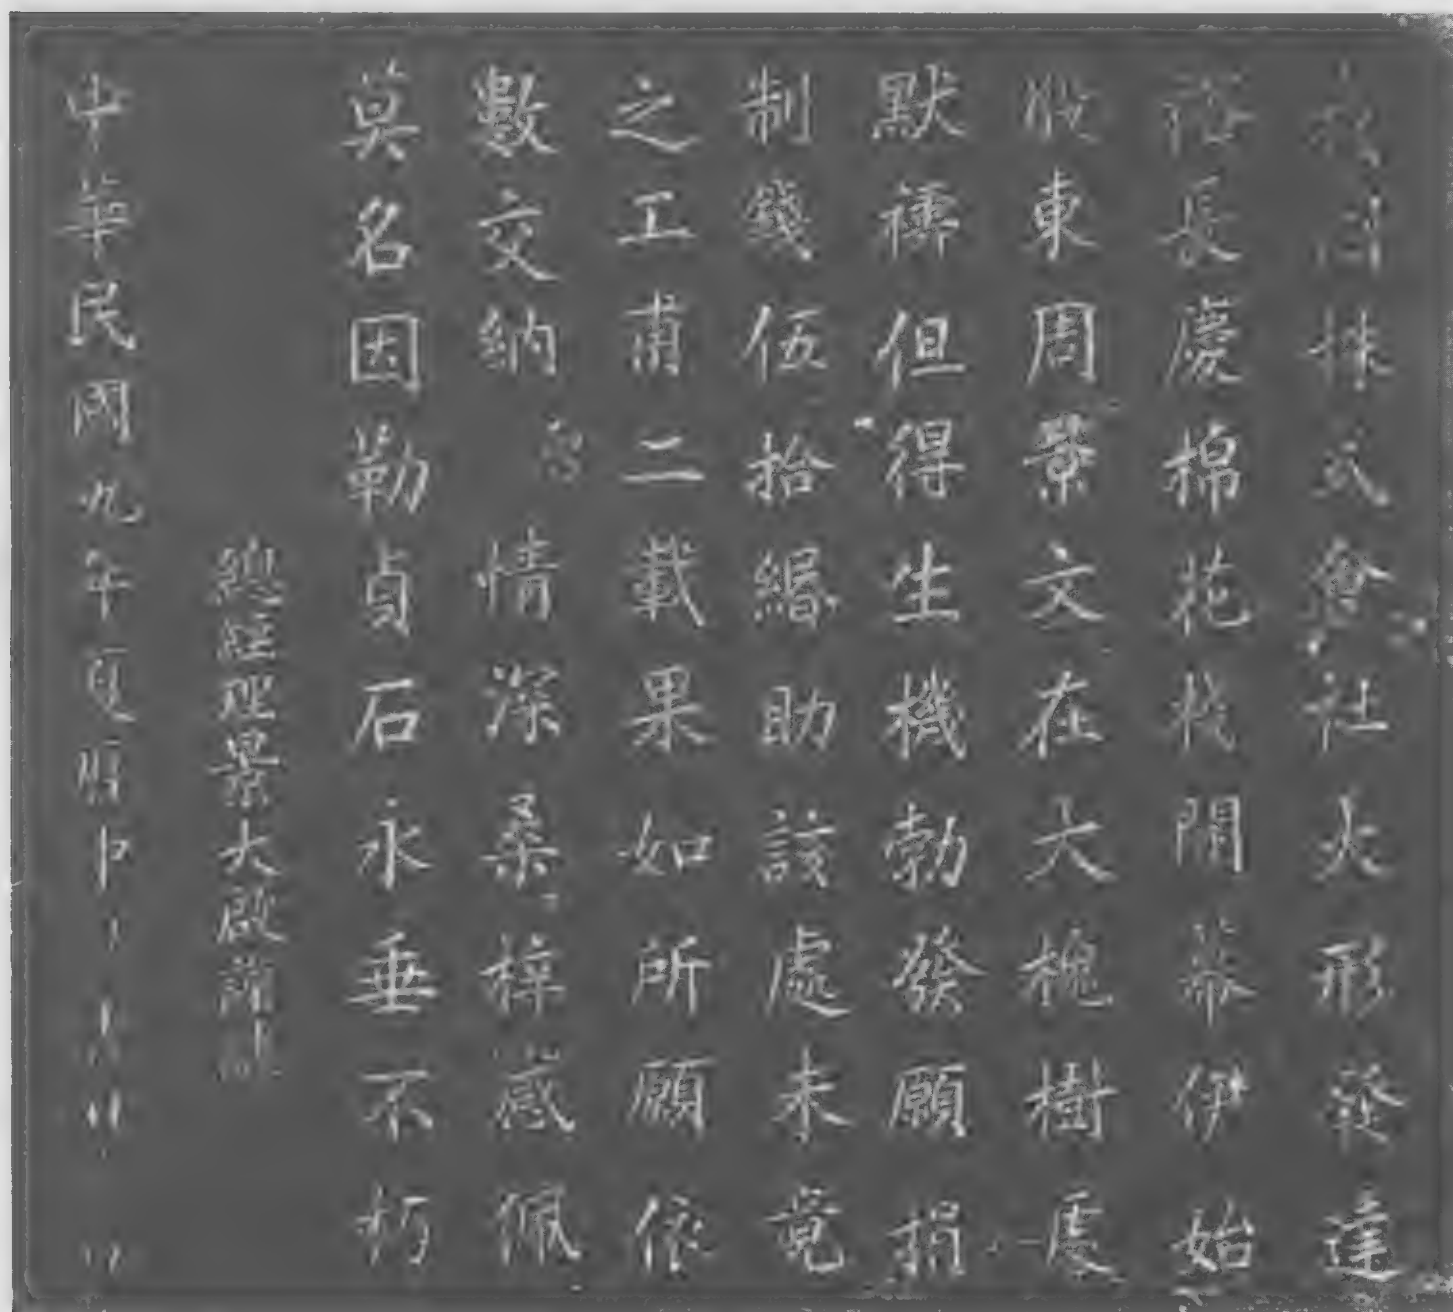 株式會社大形發達
裕長慶棉花棧開幕伊始
股東周業文在大槐樹處
默禱但得生機勃發願捐
制錢伍拾緡助該處未竟
之工甫二載果如所願依
數交納 情深桑梓感佩
莫名因勒貞石永垂不朽
總經理景大啟謹
中華民國九年夏曆